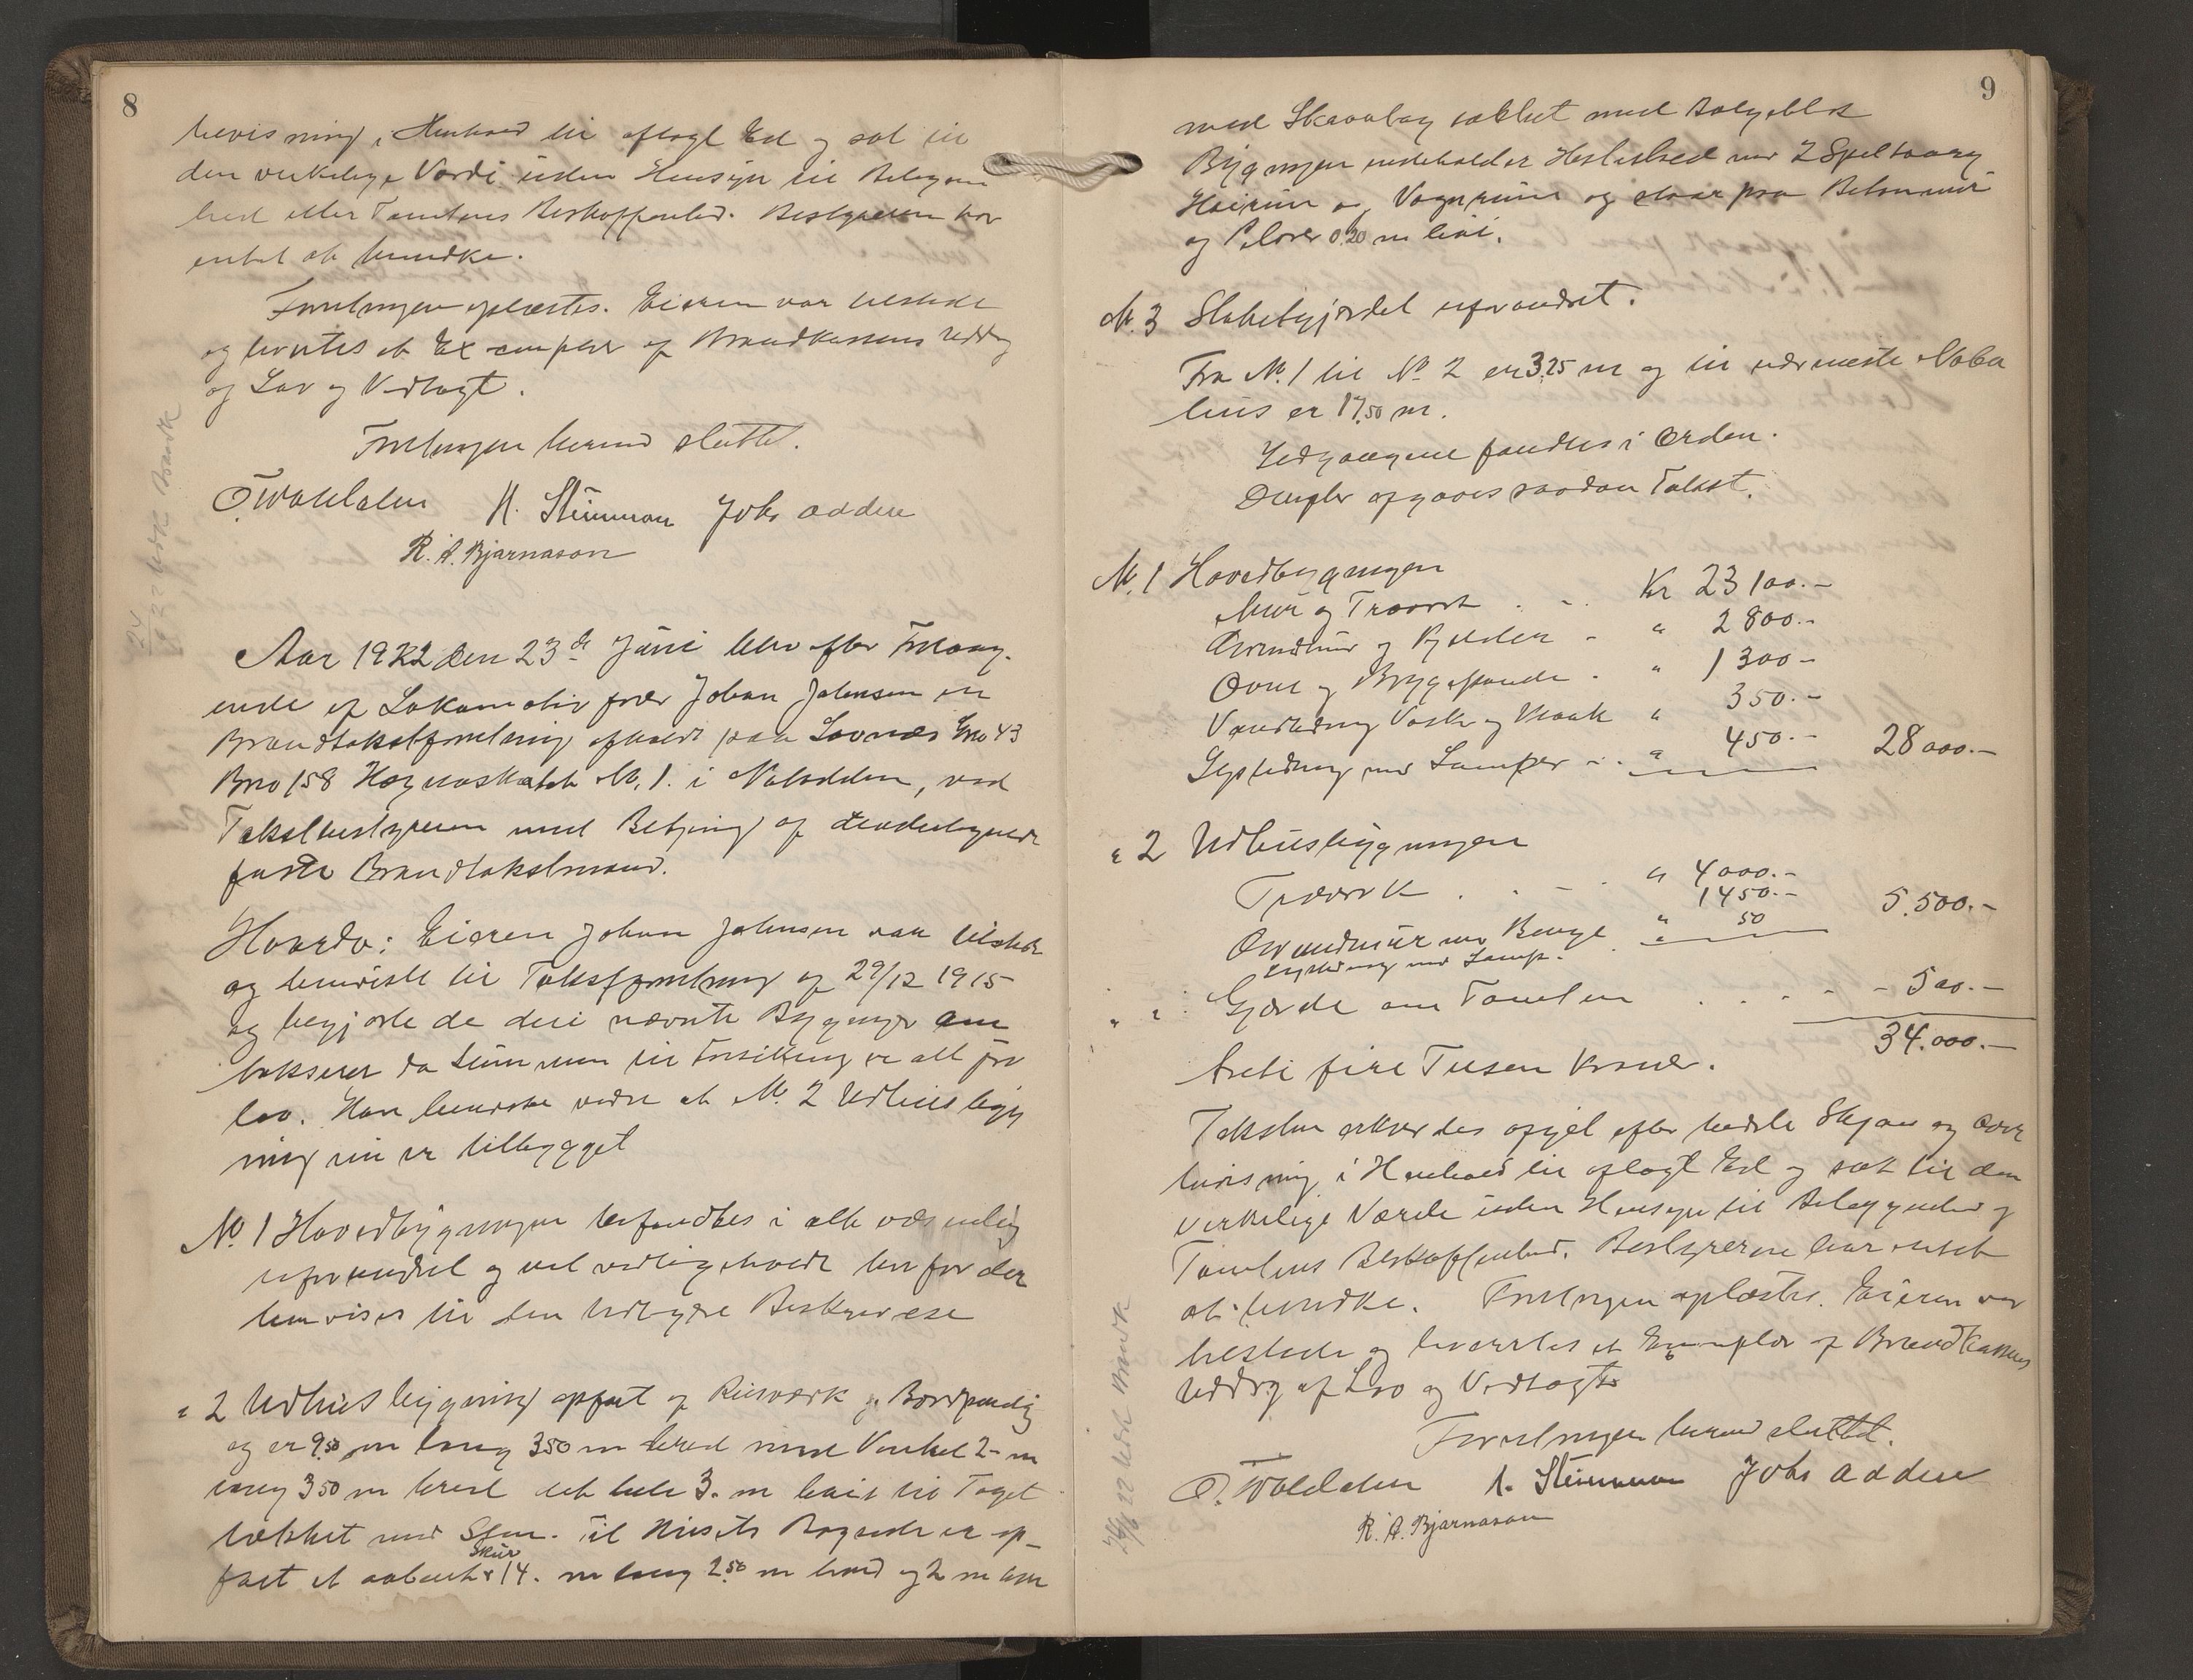 8
bevisning i Henhold til aflagt Ed og sat til
den virkelige Værdi uden Hensyn til Beliggen
hed eller Tomtens Beskaffenhed. Bestyreren har
intet at bemerke.
Forretningen oplæstes. Eieren var tilstede
og levertes et Exemplar af Brandkassens Uddrag
af Lov og Vedtægt.
Forretningen hermed sluttet.
H. Steinmoen Johs Odden
R. A. Bjarnason
24/6 22 Utsk. Brandk
Aar 1922 den 23de Juni blev efter Forlang-
ende af Lokomotivfører Johan Johnsen en
Brandtakstforretning afholdt paa Gno 43
Bno 158 No. 1. i Notodden, ved
Takstbestyreren med Betjening af undertegnede
faste Brandtakstmænd.
Hvorda: Eieren Johan Johnsen var tilstede
og henviste til Takstforretning af 29/12 1915
og begjærte de deri nævnte Bygninger om
takserer da Summen til Forsikring er alt for
lav. Han bemerket videre at No. 2 Udhusbyg
ning nu er tilbygget
No. 1 Hovedbygningen befandtes i alt væsentlig
uforandret og vel vedligeholdt hvorfor der
henvises til den tidligere Beskrivelse
" 2 Udhusbygning opført af Reisværk og Bordpanelig
og er 9.50 m lang 3.50 m bred med Vinkel 2- m
lang 3.50 m bred det hele 3. m høit til Taget
tækket med Sten. Til Husets Bagside er op-
ført et aabent Skur 14. m lang 2.50 m bred og 2 m høi
9
med Skraatag tækket med Bølgeblik
Bygningen indeholder Hestestald med 2 Spiltaug
Høirum og Vognrum og staar paa Betonmur
og Pilarer 0.20 m høi.
No. 3 Stakitgjærdet uforandret.
Fra No. 1 til No. 2 er 3.25 m og til nærmeste Nabo
hus er 17.50 m.
Ildgangene fandtes i Orden.
Derefter afgaves saadan Takst.
No. 1 Hovedbygningen
Mur og Træværk . - . Kr 23100.-
Grundmur og Kjelder - " 2800.-
Ovne og Bryggepande . " 1300-
Vandledning Vask og Kloak " 350.-
Lysledning med Lamper - . " 450.- 28000.-
" 2 Udhusbygningen
Træværk . - . " 4000.-
Grundmur med Beuge " 1450.- 5.500.-
Lysledning med Lampe. " 50
" " : Gjærde om Tomten . . . - - 500.-
34.000.-
Treti fire Tusen Kroner.
Taksten erklærtes afgivet efter bedste Skjøn og Over
bevisning i Henhold til aflagt Ed og sat til den
virkelige Værdi uden Hensyn til Beliggenhed og
Tomtens Beskaffenhed. Bestyreren har intet
at bemerke. Forretningen oplæstes. Eieren var
tilstede og levertes et Exemplar af Brandkassens
Uddrag af Lov og Vedtægt
Forretningen hermed sluttet.
Steinmoen Johs Odden
R. A. Bjarnason
24/6 22 Utsk. Brandk